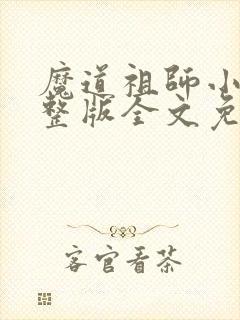 魔道祖师小
整版全文免
客官看茶